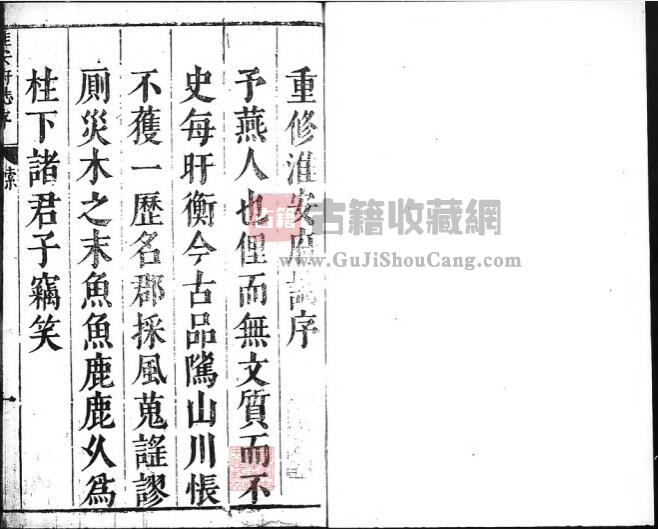 重修淮安府志序
予燕人也俚而無文質而不
史每盱衡今古品隲山川悵
不獲一歷名郡採風蒐謠謬
厠災木之末魚魚鹿鹿久為
柱下諸君子竊笑
淮安府志序
索
一
古籍
古籍收藏網
www.GuJiShouCang.com